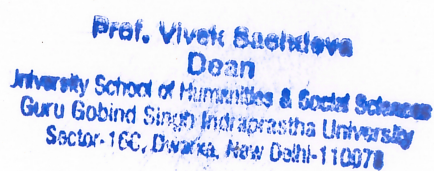 Prof. Vivek Sachdeva
Dean
University School of Humanities & Social Sciences
Guru Gobind Singh Indraprastha University
Sector-16C, Dwarka, New Delhi-110078